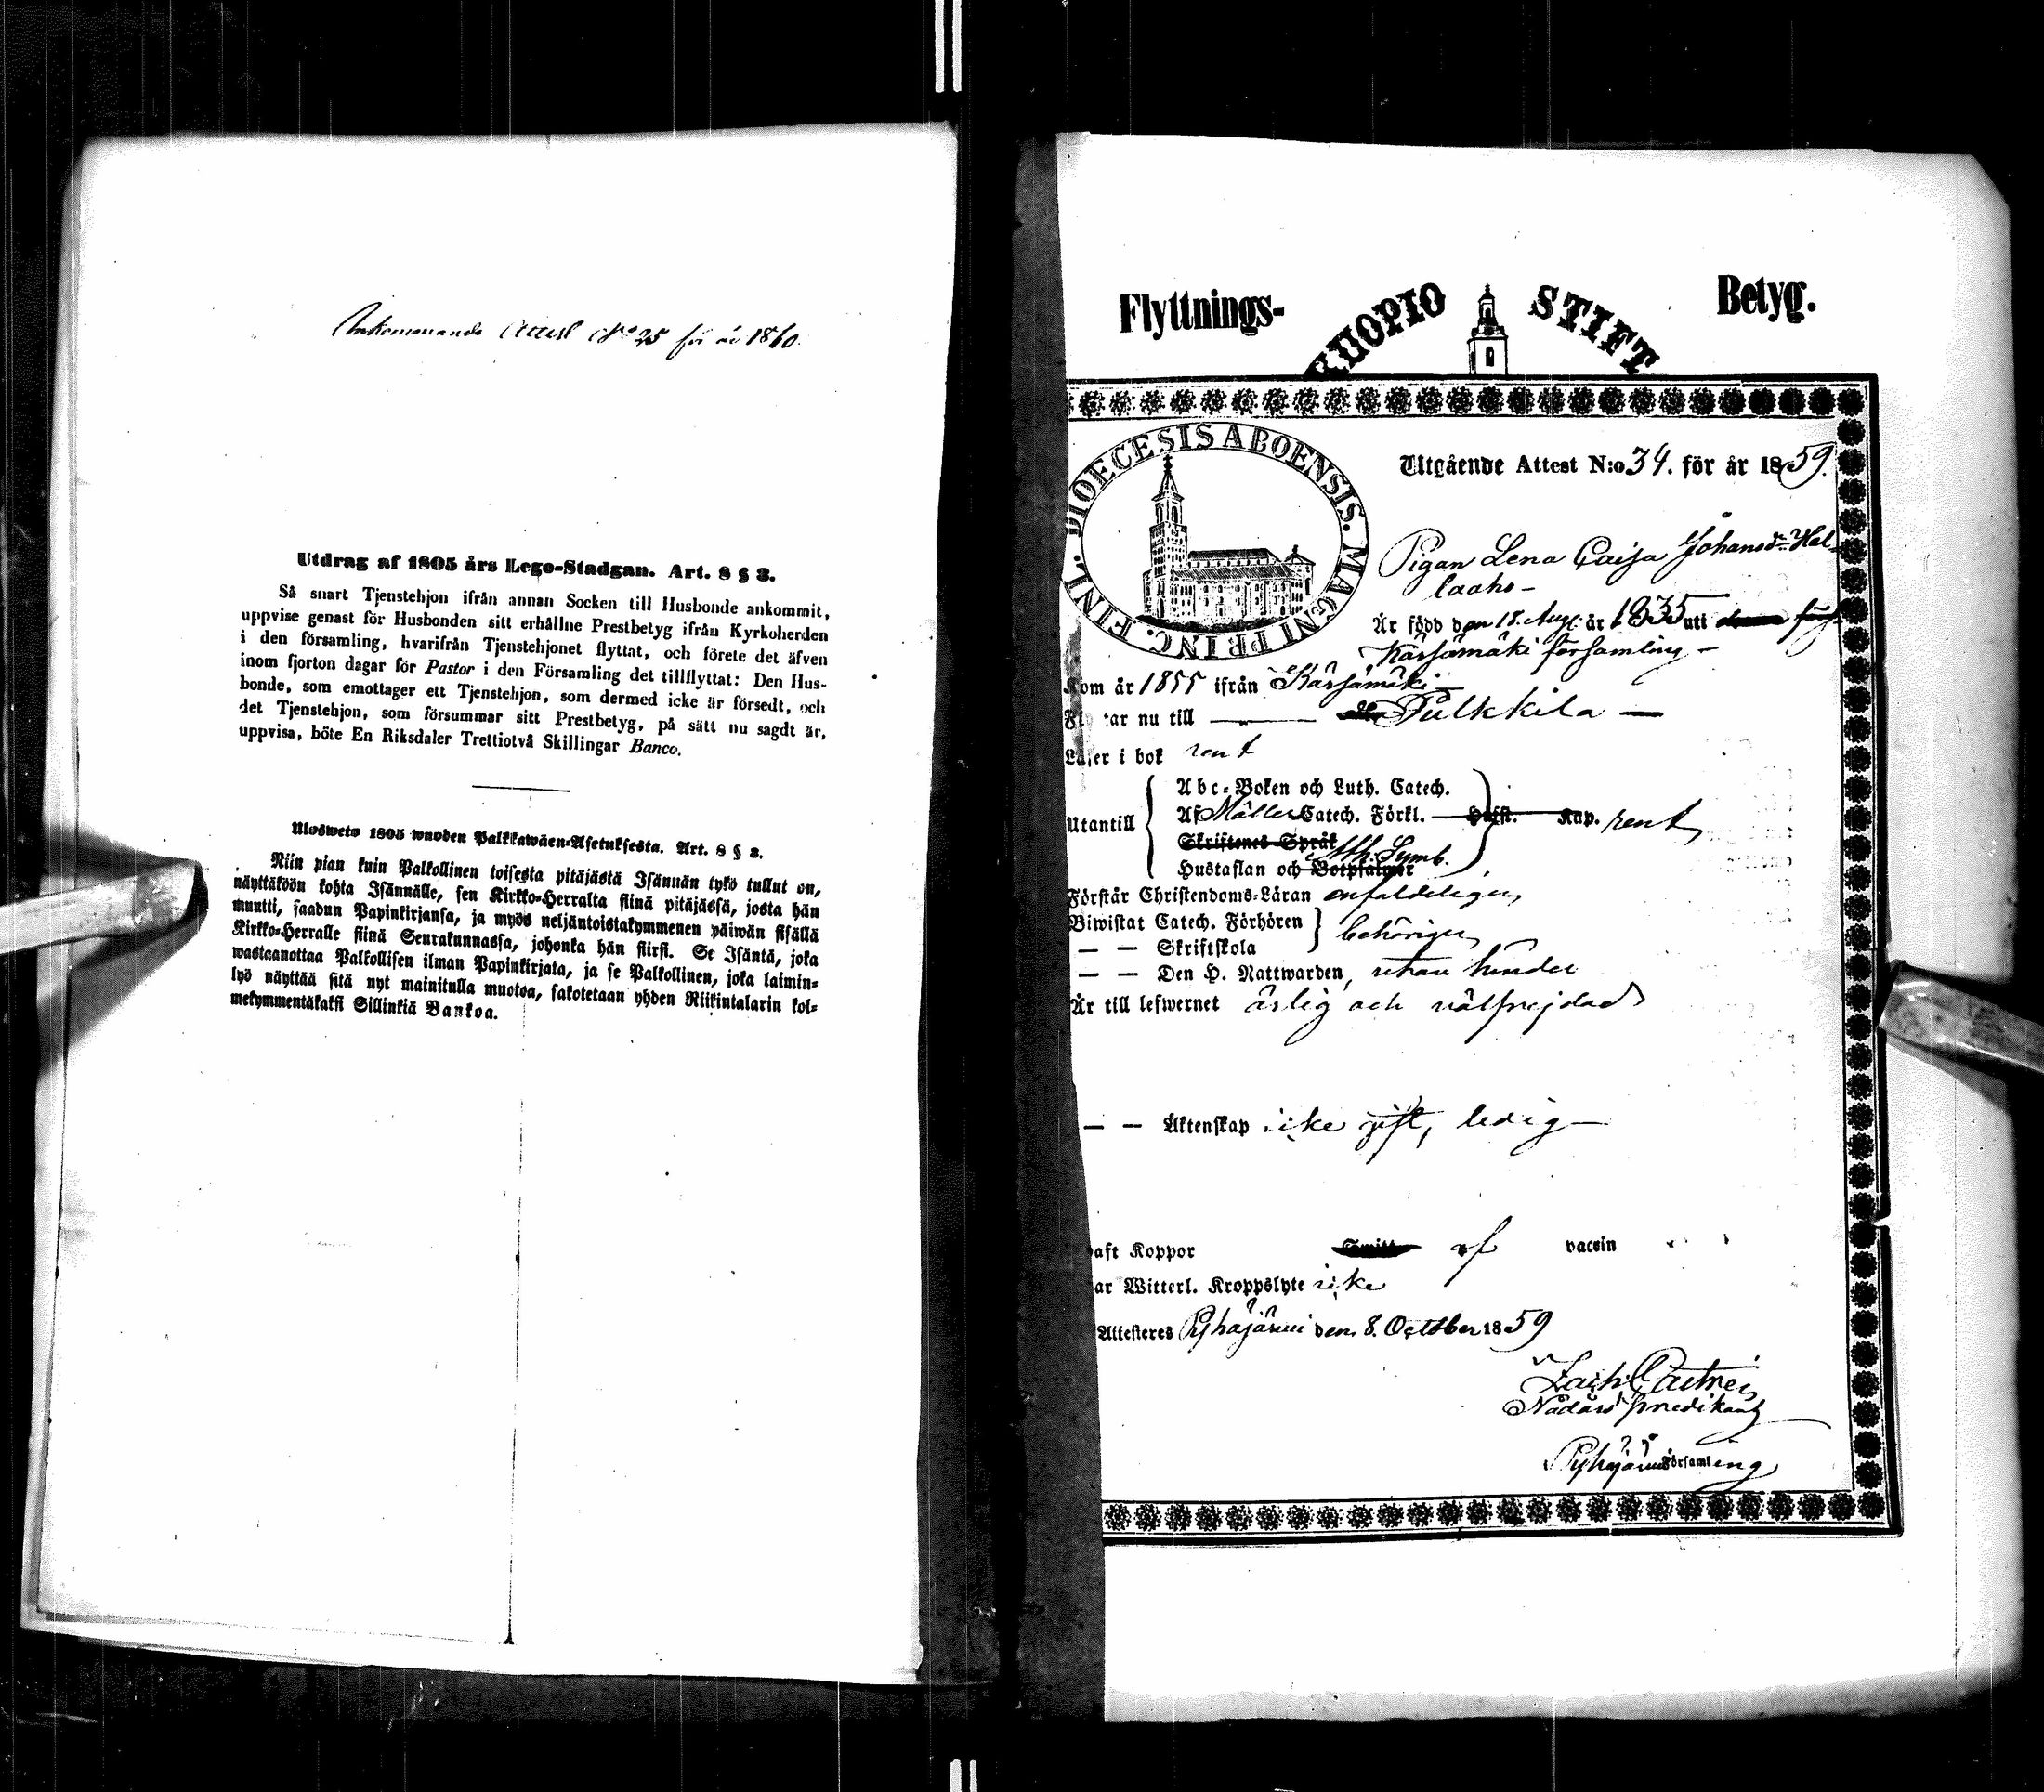 Inkommande Attest No 25 för år 1860.
Utdrag af 1805 års Lego-Stadgan. Art. 8 § 3.
Så snart Tjenstehjon ifrån annan Socken till Husbonde ankommit,
uppvise genast för Husbonden sitt erhållne Prestbetyg ifrån Kyrkoherden
i den församling, hvarifrån Tjenstehjonet flyttat, och förete det äfven
inom fjorton dagar för Pastor i den Församling det tillflyttat: Den Hus-
bonde, som emottager ett Tjenstehjon, som dermed icke är försedt, och
det Tjenstehjon, som försummar sitt Prestbetyg, på sätt nu sagdt är,
uppvisa, böte En Riksdaler Trettiotvå Skillingar Banco.
Ulosweto 1805 wuoden Palkkawäen-Asetuksesta. Art. 8 § 3.
Niin pian kuin Palkollinen toisesta pitäjästä Isännän tykö tullut on,
näyttäköön kohta Isännälle, sen Kirkko-Herralta siinä pitäjässä, josta hän
muutti, saadun Papinkirjansa, ja myös neljäntoistakymmenen päiwän sisällä
Kirkko-Herralle siinä Seurakunnassa, johonka hän siirsi. Se Isäntä, joka
wastaanottaa Palkollisen ilman Papinkirjata, ja se Palkollinen, joka laimin-
lyö näyttää sitä nyt mainitulla muotoa, sakotetaan yhden Riikintalarin kol-
mekymmentäkaksi Sillinkiä Bankoa.
Flyttnings- KUOPIO STIFT Betyg.
FINL. DIOECESIS ABOENSIS. MAGNI PRINC.
Utgående Attest N:o 34. för år 1859.
Pigan Lena Caisa Johansdr Hal-
laaho
Är född den 18. Aug. år 1835 uti
Kärsämäki församling
Kom år 1855 ifrån Kärsämäki
Flyttar nu till Pulkkila
Läser i bok rent
Abc-Boken och Luth. Catech.
Utantill Af Möller Catech. Förkl. Hufst. Kap. rent
Skriftenes Språk
Hustaflan och Botpsalmer Ath. Symb.
Förstår Christendoms-Läran enfaldeligen
Biwistat Catech. Förhören behörigen
— — Skriftskola
— — Den H. Nattwarden, utan hinder
Är till lefwernet ärlig och välfrejdad
— — Äktenskap icke gift, ledig
haft Koppor af vaccin
ar Witterl. Kroppslyte icke
Attesteres Pyhäjärvi den 8. October 1859
Zach. Castrén
Nådårs predikant
Pyhäjärvi Församling